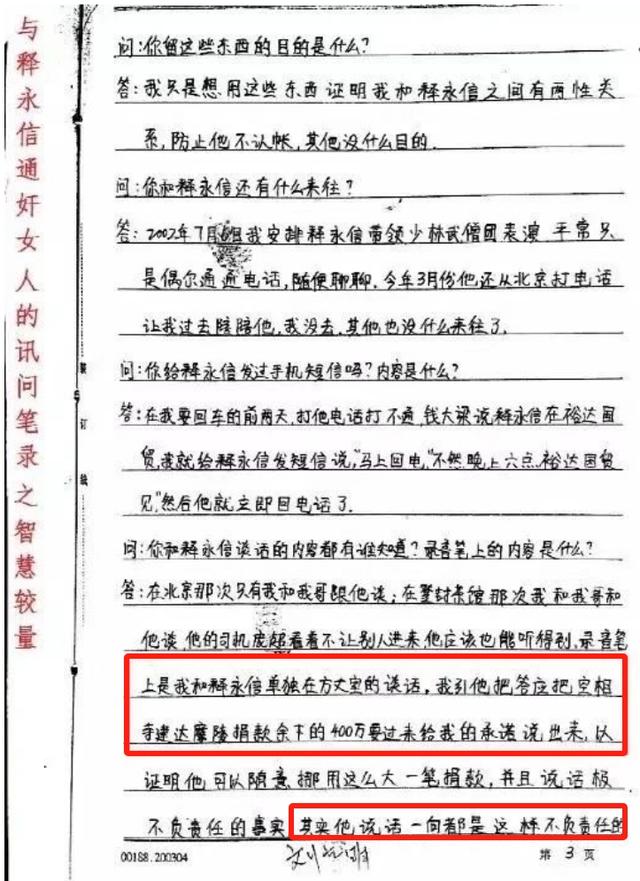 与释永信通奸女人的讯问笔录之智慧较量
问:你留这些东西的目的是什么?
答:我只是想用这些东西证明我和释永信之间有两性关
系,防止他不认帐,其他没什么目的.
问:你和释永信还有什么来往?
答:2002年7月 我安排释永信带领少林武僧团表演 平常只
是偶尔通通电话,随便聊聊.今年3月份他还从北京打电话
让我过去陪陪他,我没去,其他也没什么来往了.
问:你给释永信发过手机短信吗?内容是什么?
答:在我要回车的前两天,打他电话打不通,钱大梁说释永信在裕达国
贸,我就给释永信发短信说,"马上回电,"不然晚上六点,裕达国贸
见,"然后他就立即回电话了.
问:你和释永信谈话的内容都有谁知道?录音笔上的内容是什么?
答:在北京那次只有我和我哥跟他谈;在登封宾馆那次我和我哥和
他谈,他的司机 看着不让别人进来,他应该也能听得到.录音笔
上是我和释永信单独在方丈室的谈话,我引他把答应把空相
寺建达摩陵捐款余下的400万要过来给我的承诺说出来,以
证明他可以随意挪用这么大一笔捐款,并且说话极
不负责任的事实.其实他说话一向都是这样不负责任的
装
订
线
00188.200304
第 3 页